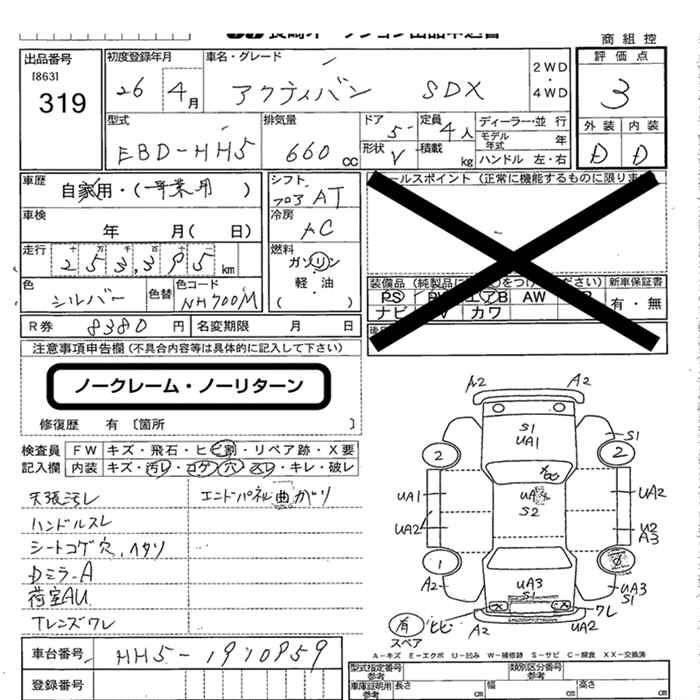 商 組 控
出品番号
[863]
319
初度登録年月
26年4月
車名・グレード
アクティバン SDX
2WD
・
4WD
評価点
3
外装 内装
D D
型式
EBD-HH5
排気量
660cc
ドア
5
形状
V
定員
4人
積載
kg
ディーラー・並行
モデル年式 年
ハンドル 左・右
車歴
自家用・(事業用)
車検
年 月(日)
走行
253,395km
色
シルバー
色替
色コード
NH700M
シフト
フロア AT
冷房
AC
燃料
ガソリン
軽・油
( )
セールスポイント (正常に機能するものに限り
新車保証書
有・無
PS
AW
ナビ
カワ
R券 8380円
名変期限 月 日
注意事項申告欄 (不具合内容等は具体的に記入して下さい)
ノークレーム・ノーリターン
修復歴 有 〔箇所 〕
検査員記入欄
FW キズ・飛石・ヒビ割・リペア跡・X要
内装 キズ・汚レ・コゲ穴・スレ・キレ・破レ
天張汚レ
エンドパネル曲がり
ハンドルスレ
シートコゲ穴、ヘタリ
Dミラ-A
荷室AU
Tレンズワレ
A2 A2
S1
UA1
S1
2 2
UA1
UA2
S2
UA2
U2
A3
1
A2
UA3
S1
UA3
S1
ワレ
有 ヒビ
スペア
A2
UA2
A-キズ E-エクボ U-凹み W-補修跡 S-サビ C-腐食 XX-交換済
車台番号 HH5-1910959
登録番号
型式指定番号
参考
類別区分番号
参考
車庫証明用
参考
長さ cm
幅 cm
高さ cm